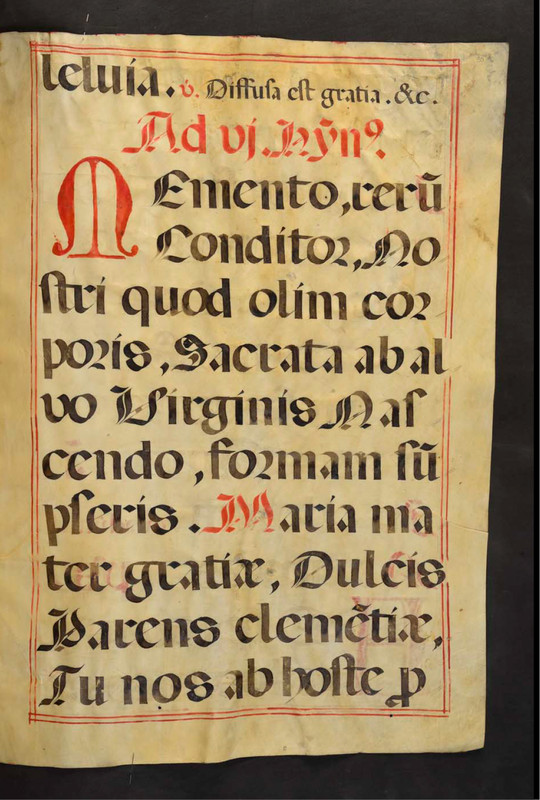 leluia. ℣. Diffusa est gratia. &c.
Ad vj. Hȳnꝰ.
MEmento, rerū
Conditor, No
stri quod olim cor
poris, Sacrata ab al
vo Virginis Nas
cendo, formam sū
pseris. Maria ma
ter gratiæ, Dulcis
Parens clemẽtiæ,
Tu nos ab hoste ꝓ